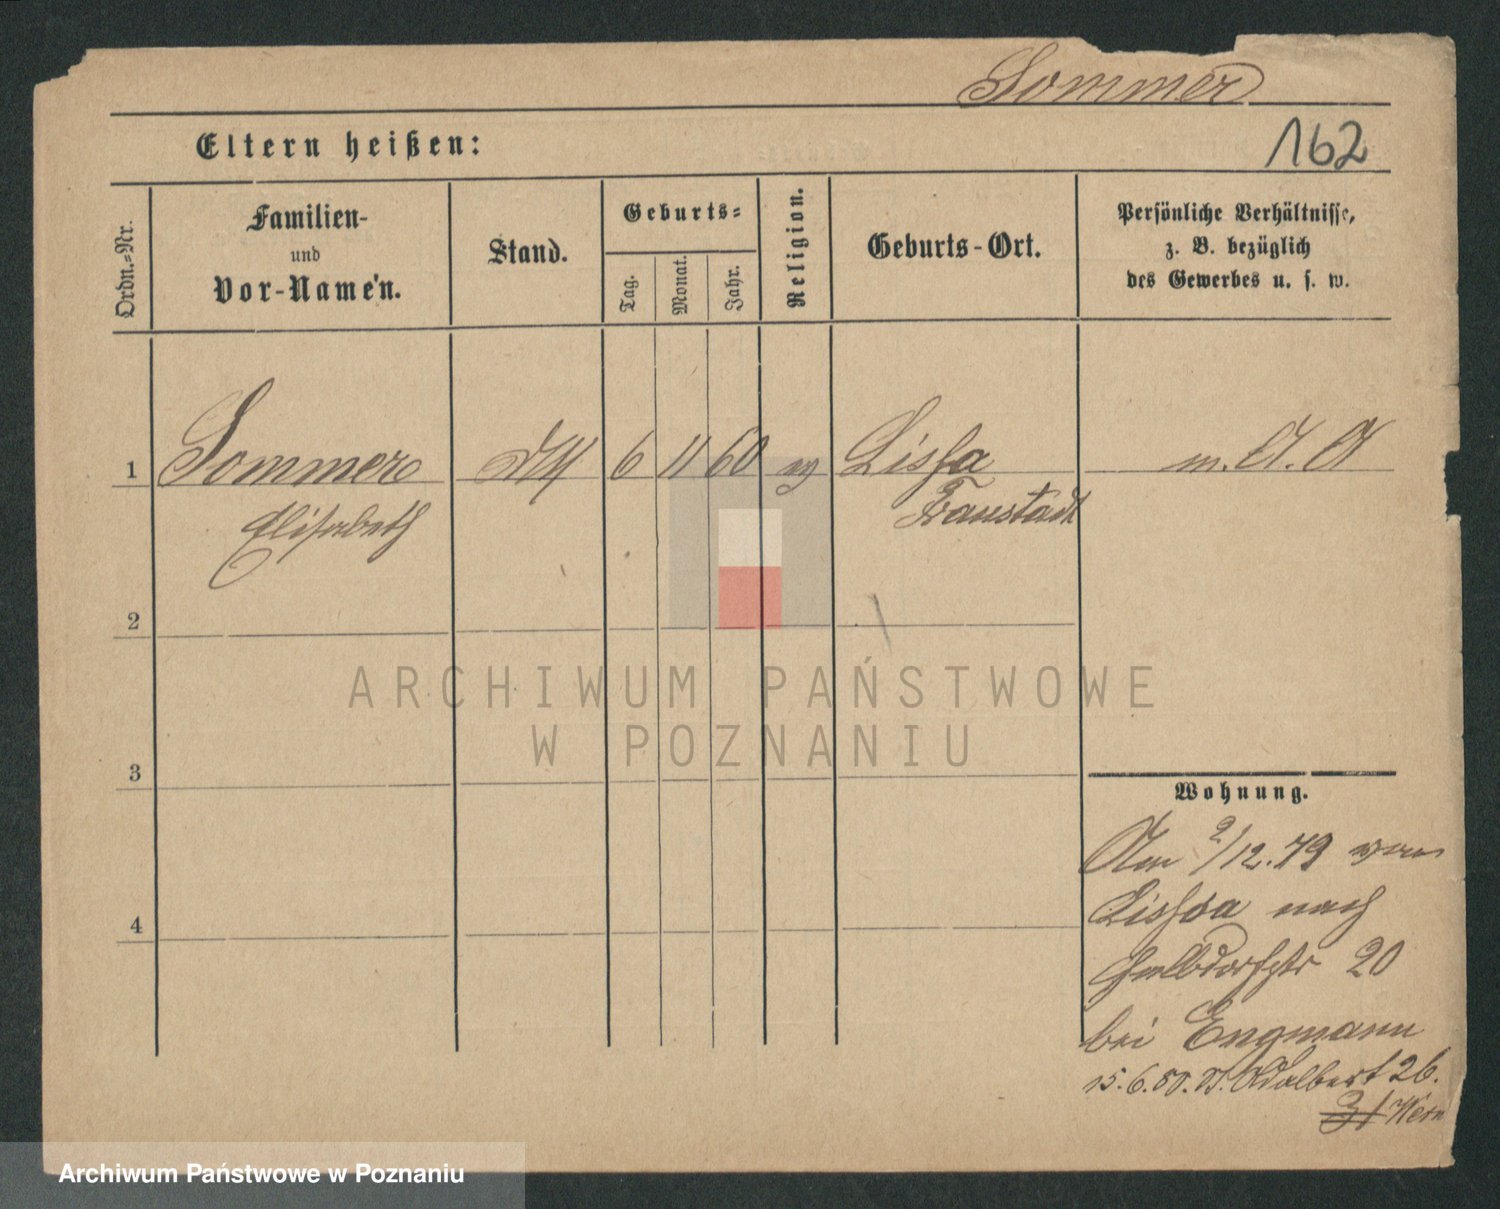 Sommer
162
Eltern heißen:
Ordn.-Nr.
Familien-
und
Vor-Namen.
Stand.
Geburts-
Tag.
Monat.
Jahr.
Religion.
Geburts-Ort.
Persönliche Verhältnisse,
z. B. bezüglich
des Gewerbes u. s. w.
1 Sommer 6 11 60 Lissa m. A. A
Elisabeth Fraustadt
2
ARCHIWUM PAŃSTWOWE
W POZNANIU
3
Wohnung.
2/12.79 von
Lissa nach
4
20
bei Engmann
15.6.80. St. Adalbert 26.
31
Archiwum Państwowe w Poznaniu